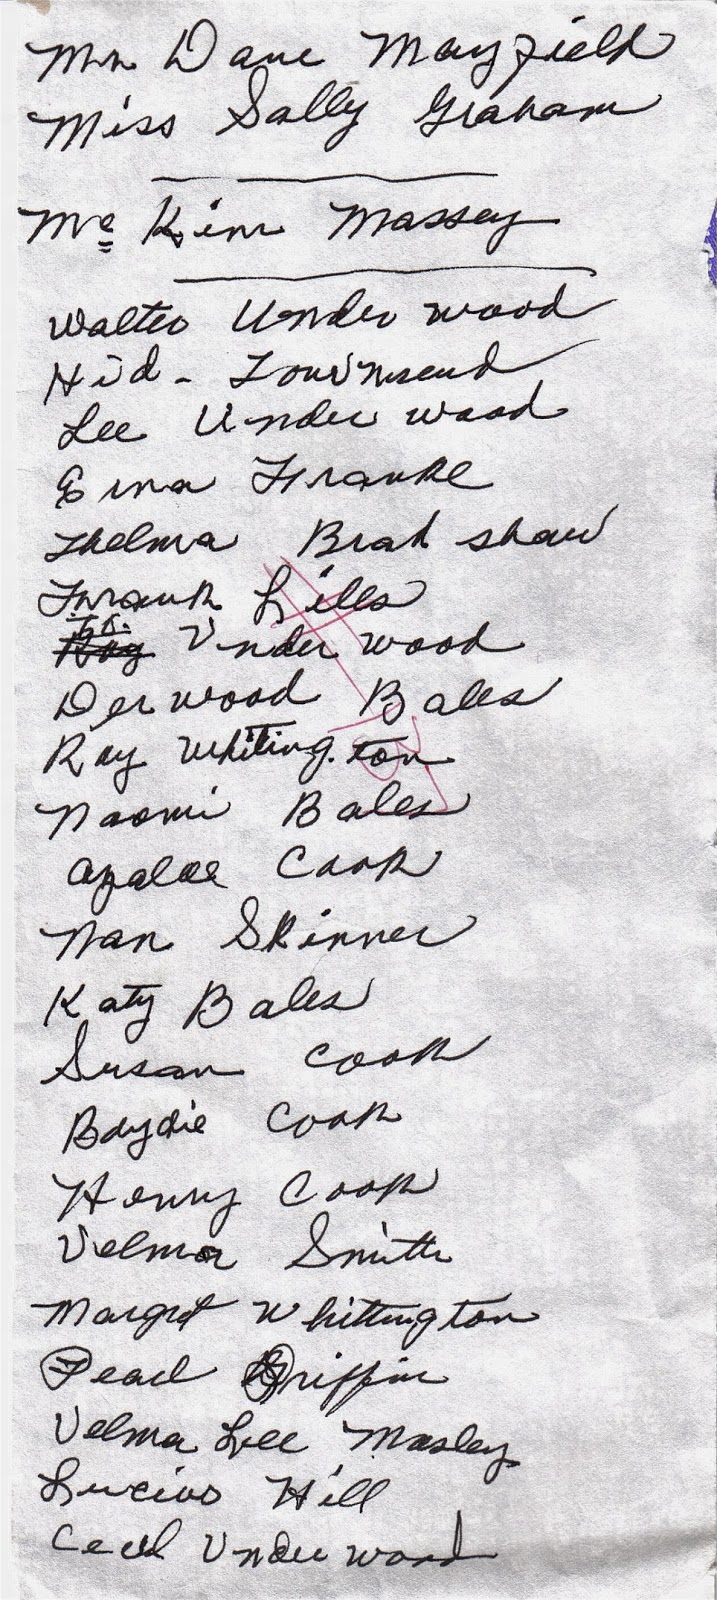 Mr Dave Mayfield
Miss Sally Graham
Mc Kim Massey
Walter Underwood
Hid - Townsend
Lee Underwood
Erna Franke
Thelma Bradshaw
Frank Lills
J.D. Underwood
Derwood Bales
Ray Whitington
Naomi Bales
Azalee Cook
Nan Skinner
Katy Bales
Susan Cook
Baydie Cook
Henry Cook
Velma Smith
Margret Whittington
Pearl Griffin
Velma Lee Masley
Lucius Hill
Cecil Underwood